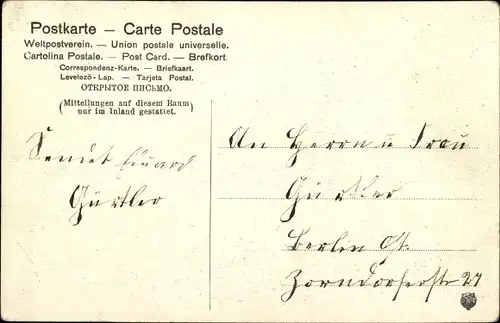 Postkarte – Carte Postale
Weltpostverein. — Union postale universelle.
Cartolina Postale. — Post Card. — Brefkort.
Correspondenz-Karte. — Briefkaart.
Levelező-Lap. — Tarjeta Postal.
ОТКРЫТОЕ ПИСЬМО.
(Mitteilungen auf diesem Raum)
nur im Inland gestattet.
Sendet Eduard
Gürtler
An Herrn u Frau
Gürtler
Berlin Ost.
Zorndorferstr 27